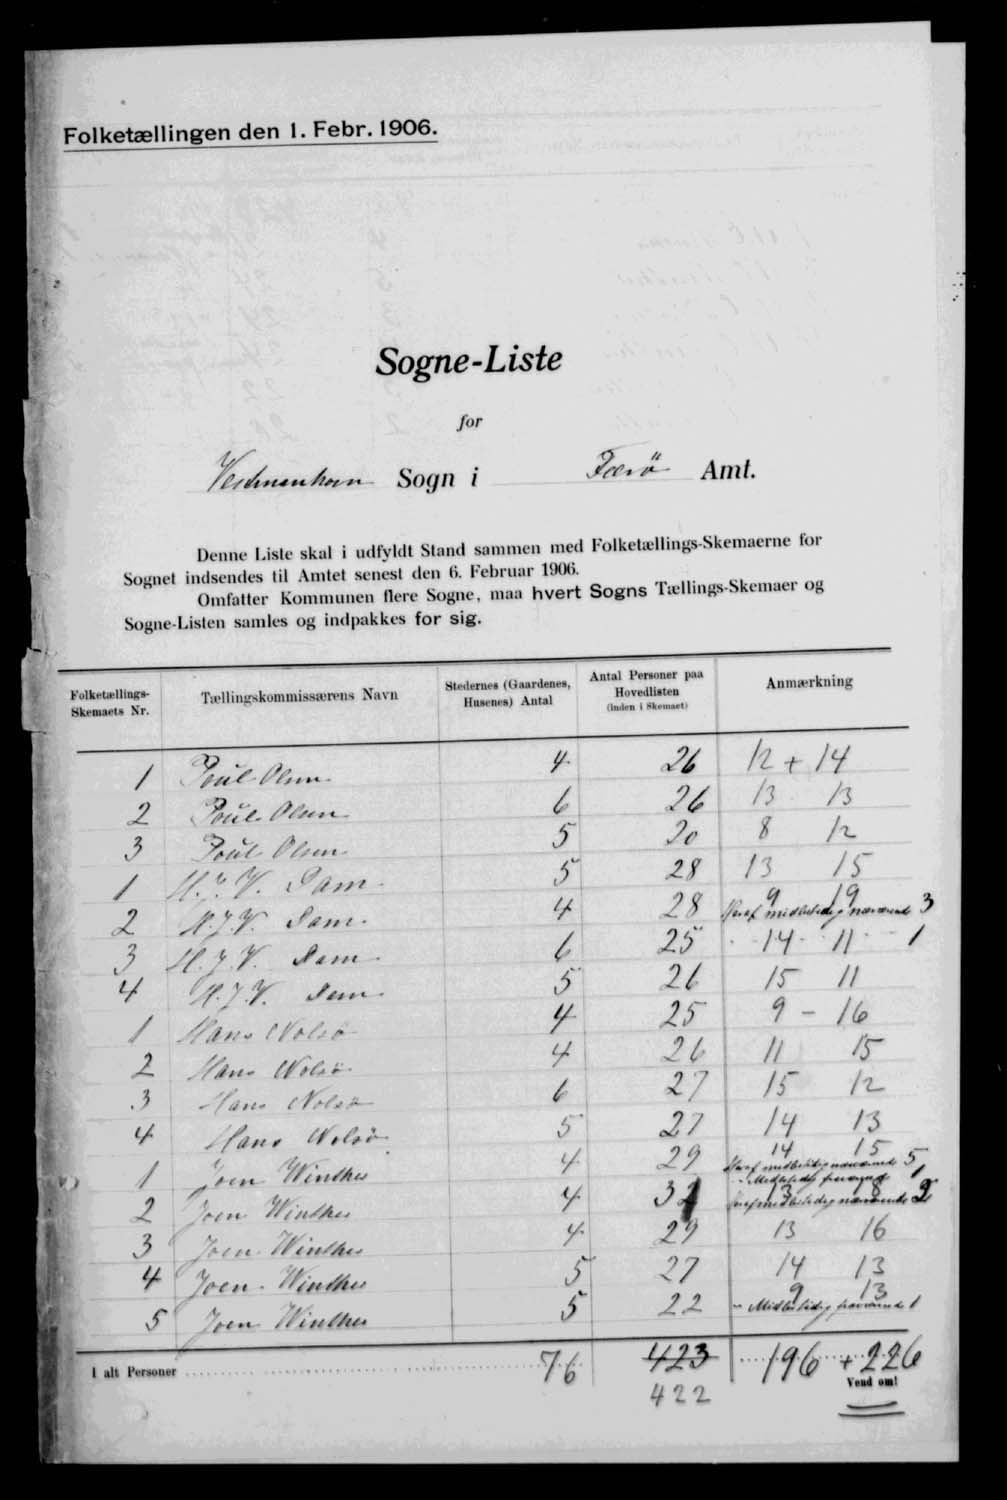 Folketællingen den 1. Febr. 1906.
Sogne-Liste
for
Vestmanhavn Sogn i Færö Amt.
Denne Liste skal i udfyldt Stand sammen med Folketællings-Skemaerne for
Sognet indsendes til Amtet senest den 6. Februar 1906.
Omfatter Kommunen flere Sogne, maa hvert Sogns Tællings-Skemaer og
Sogne-Listen samles og indpakkes for sig.
Folketællings-Skemaets Nr. Tællingskommissærens Navn Stedernes (Gaardenes, Husenes) Antal Antal Personer paa Hovedlisten (inden i Skemaet) Anmærkning
1 Poul Olsen 4 26 12 + 14
2 Poul Olsen 6 26 13 13
3 Poul Olsen 5 20 8 12
1 H. J. V. Dam 5 28 13 15
2 H. J. V. Dam 4 28 9 19 Heraf midlertidig nærværende 3
3 H. J. V. Dam 6 25 14 11 1
4 H. J. V. Dam 5 26 15 11
1 Hans Nolsö 4 25 9 - 16
2 Hans Nolsö 4 26 11 15
3 Hans Nolsö 6 27 15 12
4 Hans Nolsö 5 27 14 13
1 Joen Winther 4 29 14 15 Heraf midlertidig nærværende 5
- Midlertidig fraværende 1
2 Joen Winther 4 3 8 Heraf midlertidig nærværende 2
3 Joen Winther 4 29 13 16
4 Joen Winther 5 27 14 13
5 Joen Winther 5 22 9 13 - Midlertidig fraværende 1
I alt Personer 76 423 196 + 226
422
Vend om!